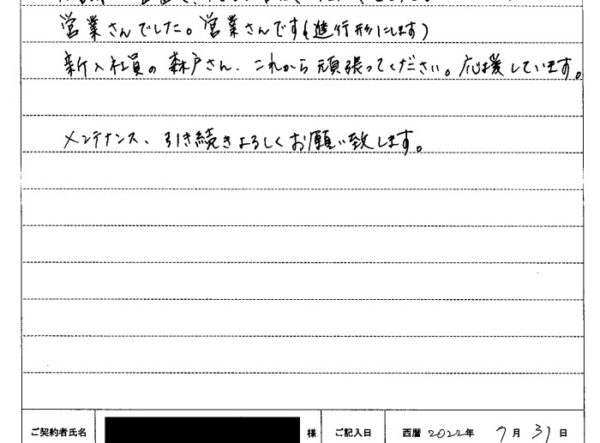 営業さんでした。営業さんです(進行形にします)
新入社員の森戸さん、これから頑張ってください。応援しています。
メンテナンス、引き続きよろしくお願い致します。
ご契約者氏名 様 ご記入日 西暦 2022年 7月 31日